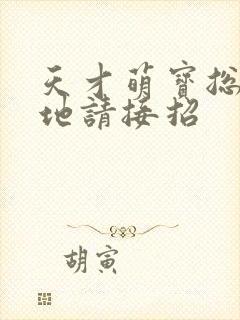 天才萌寳总
地請接招
胡寅